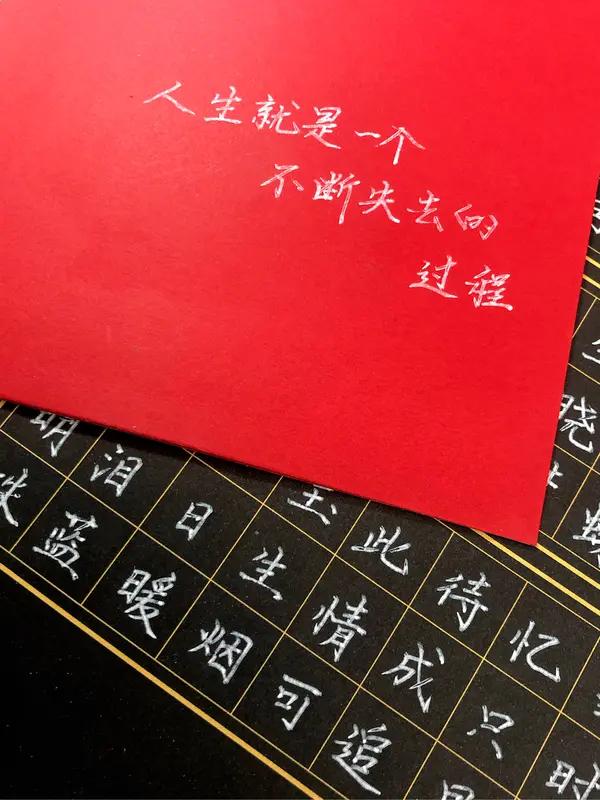 人生就是一个
不断失去的
过程
明
泪蓝
日暖
玉生烟
此情可
待成追
忆只是
时
晓